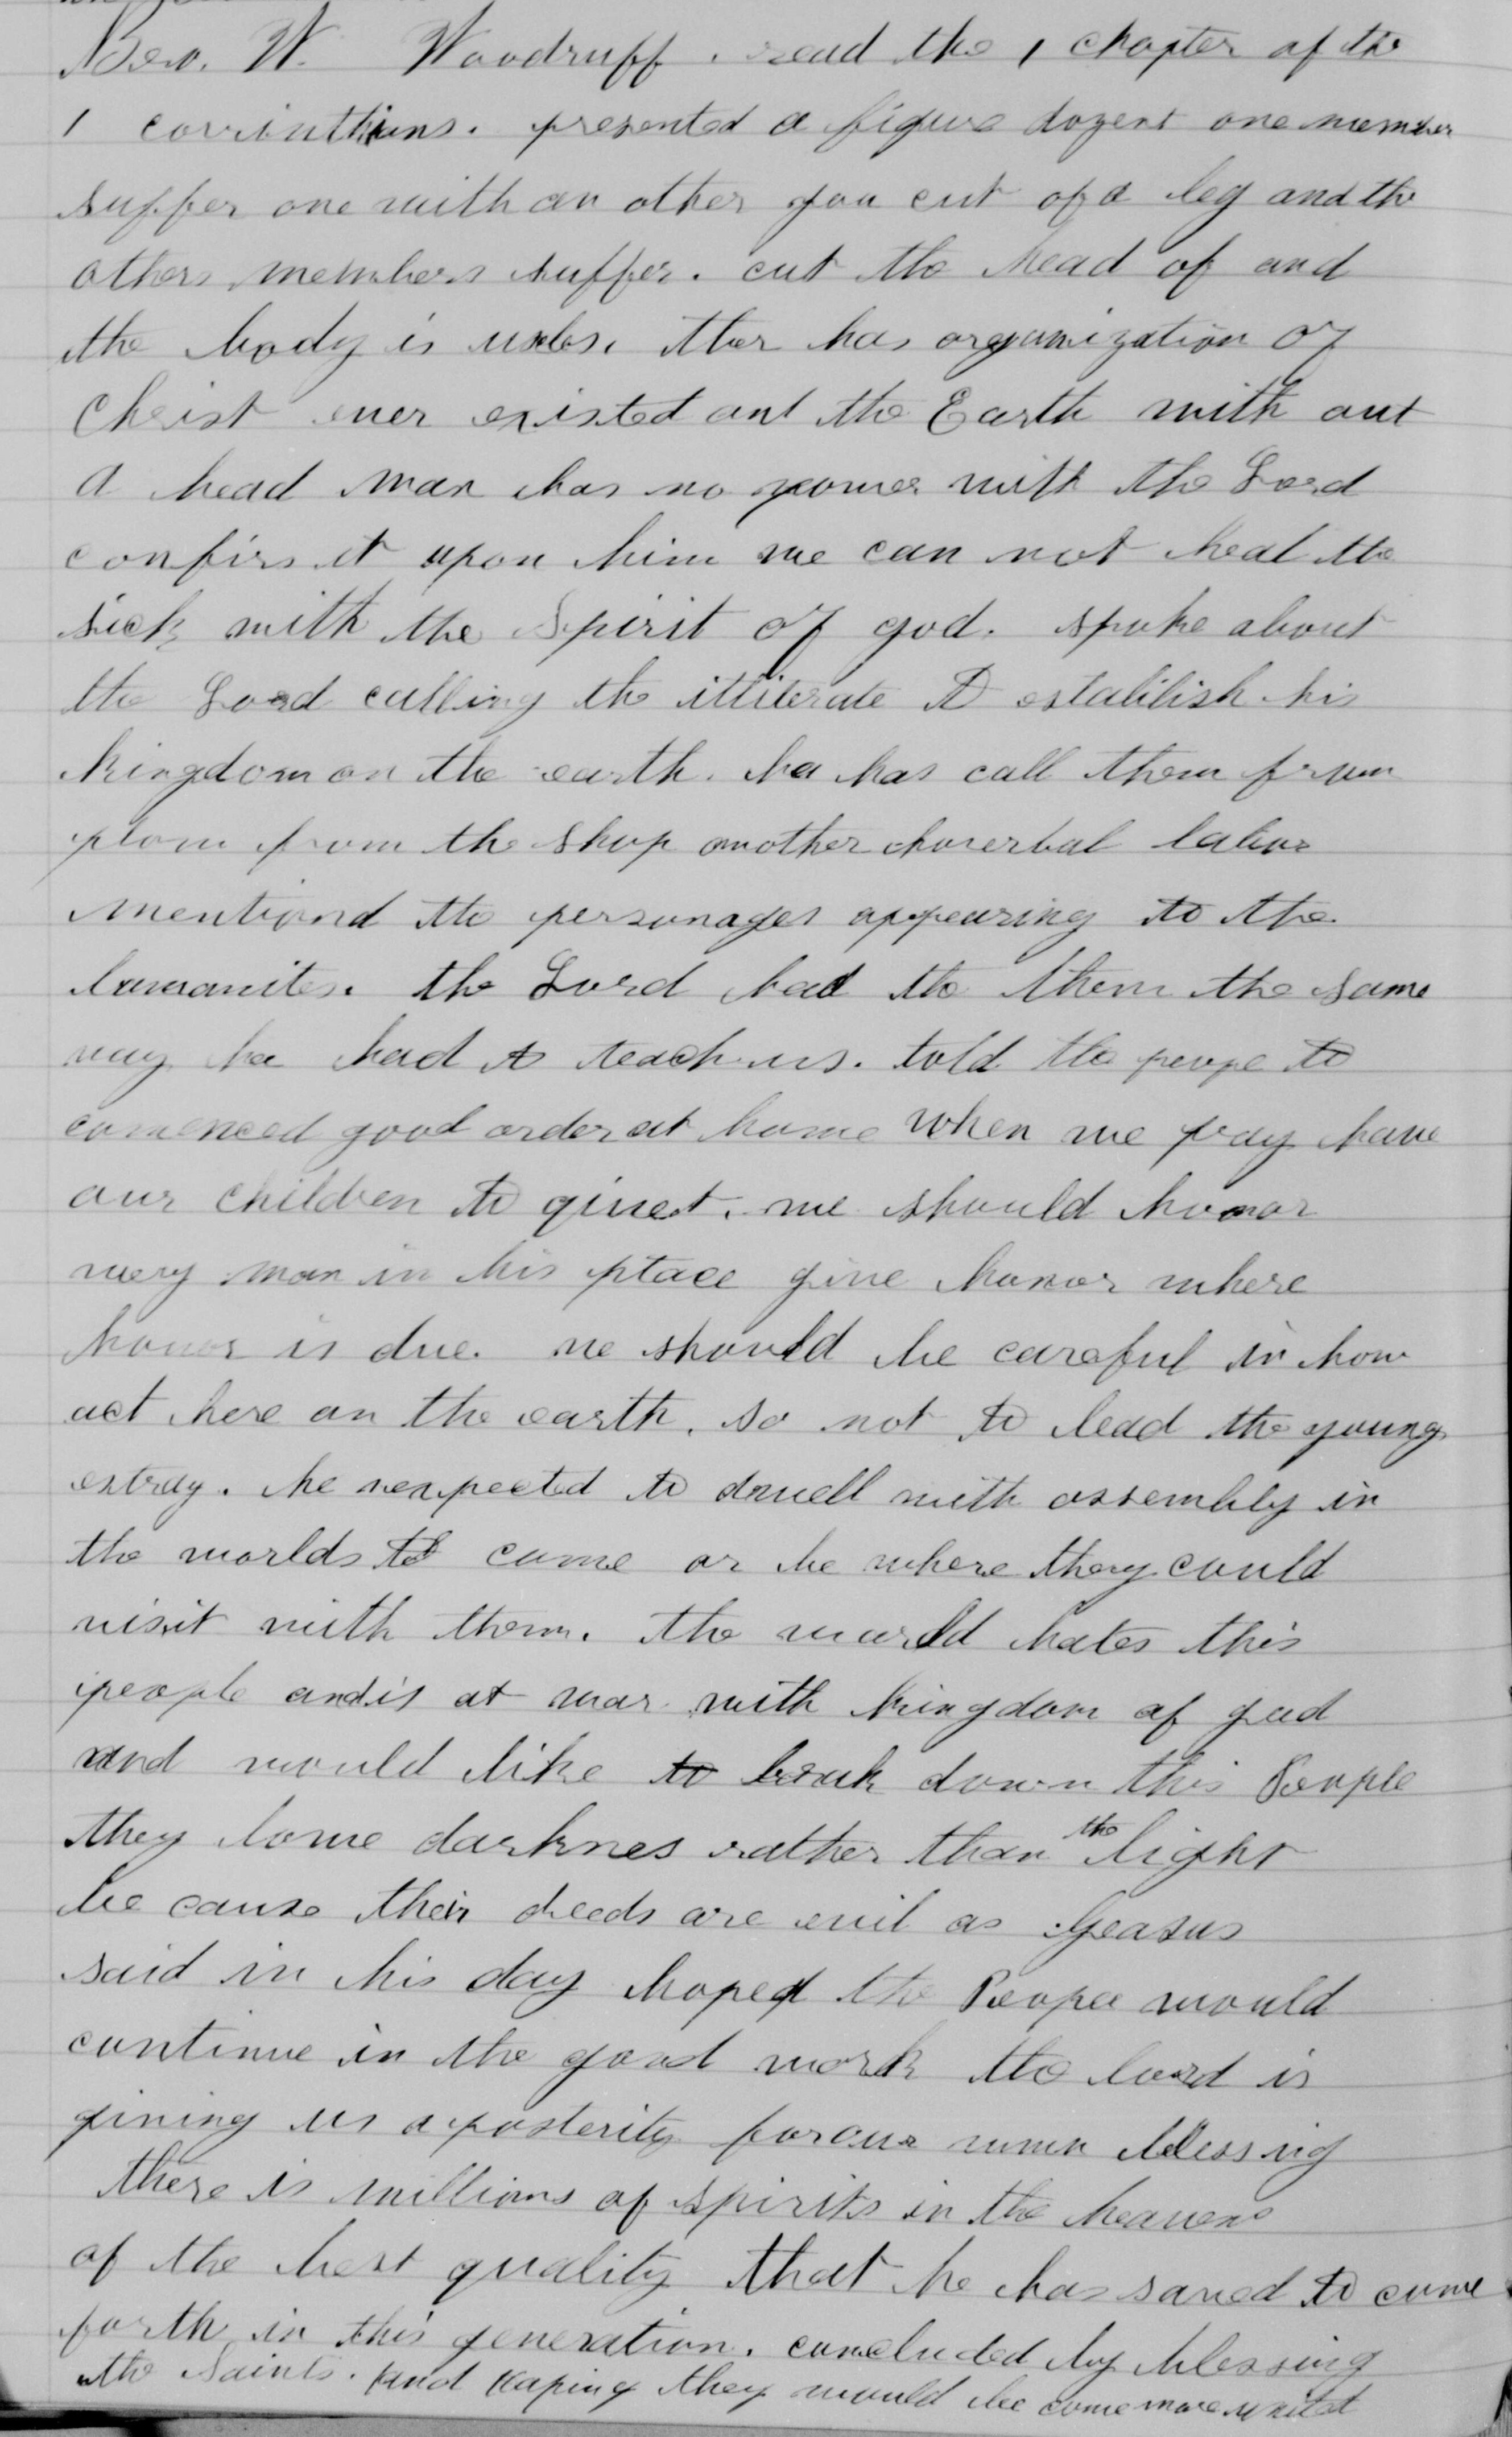 Bro. W. Woodruff. read the 1 chapter of the
1 corrinthians. presented a figure dozent one member
suffer one with an other you cut of a leg and the
others members suffer. cut the head of and
the body is usles. ther has organization of
Christ ever existed ont the Earth with out
a head man has no power with the Lord
confirs it upon him we can not heal the
sick with the Spirit of god. spoke about
the Lord calling the illiterate to establish his
kingdom on the earth. he has call them from
plow from the shop another labor
mentiond the personages appearing to the
lamanites. the Lord had the them the same
way he had to teach us. told the peope to
comenced good order at home When we pray have
our children to quiet. we should honor
every man in his place give honor where
honor is due. we should be careful in how
act here on the earth. so not to lead the young
estray. he expected to dwell with assembly in
the worlds to come or be where they could
visit with them. the world hates this
people and is at war with kingdom of god
and would like to break down this People
they love darknes rather than the light
be cause their deeds are evil as Jeasus
said in his day hoped the Peopee would
continue in the good work the lord is
giving us a posterity for our own blessing
there is millions of spirits in the heavens
of the best quality that he has saved to come
forth in this generation. concluded by blessing
the Saints. and they would be come more united